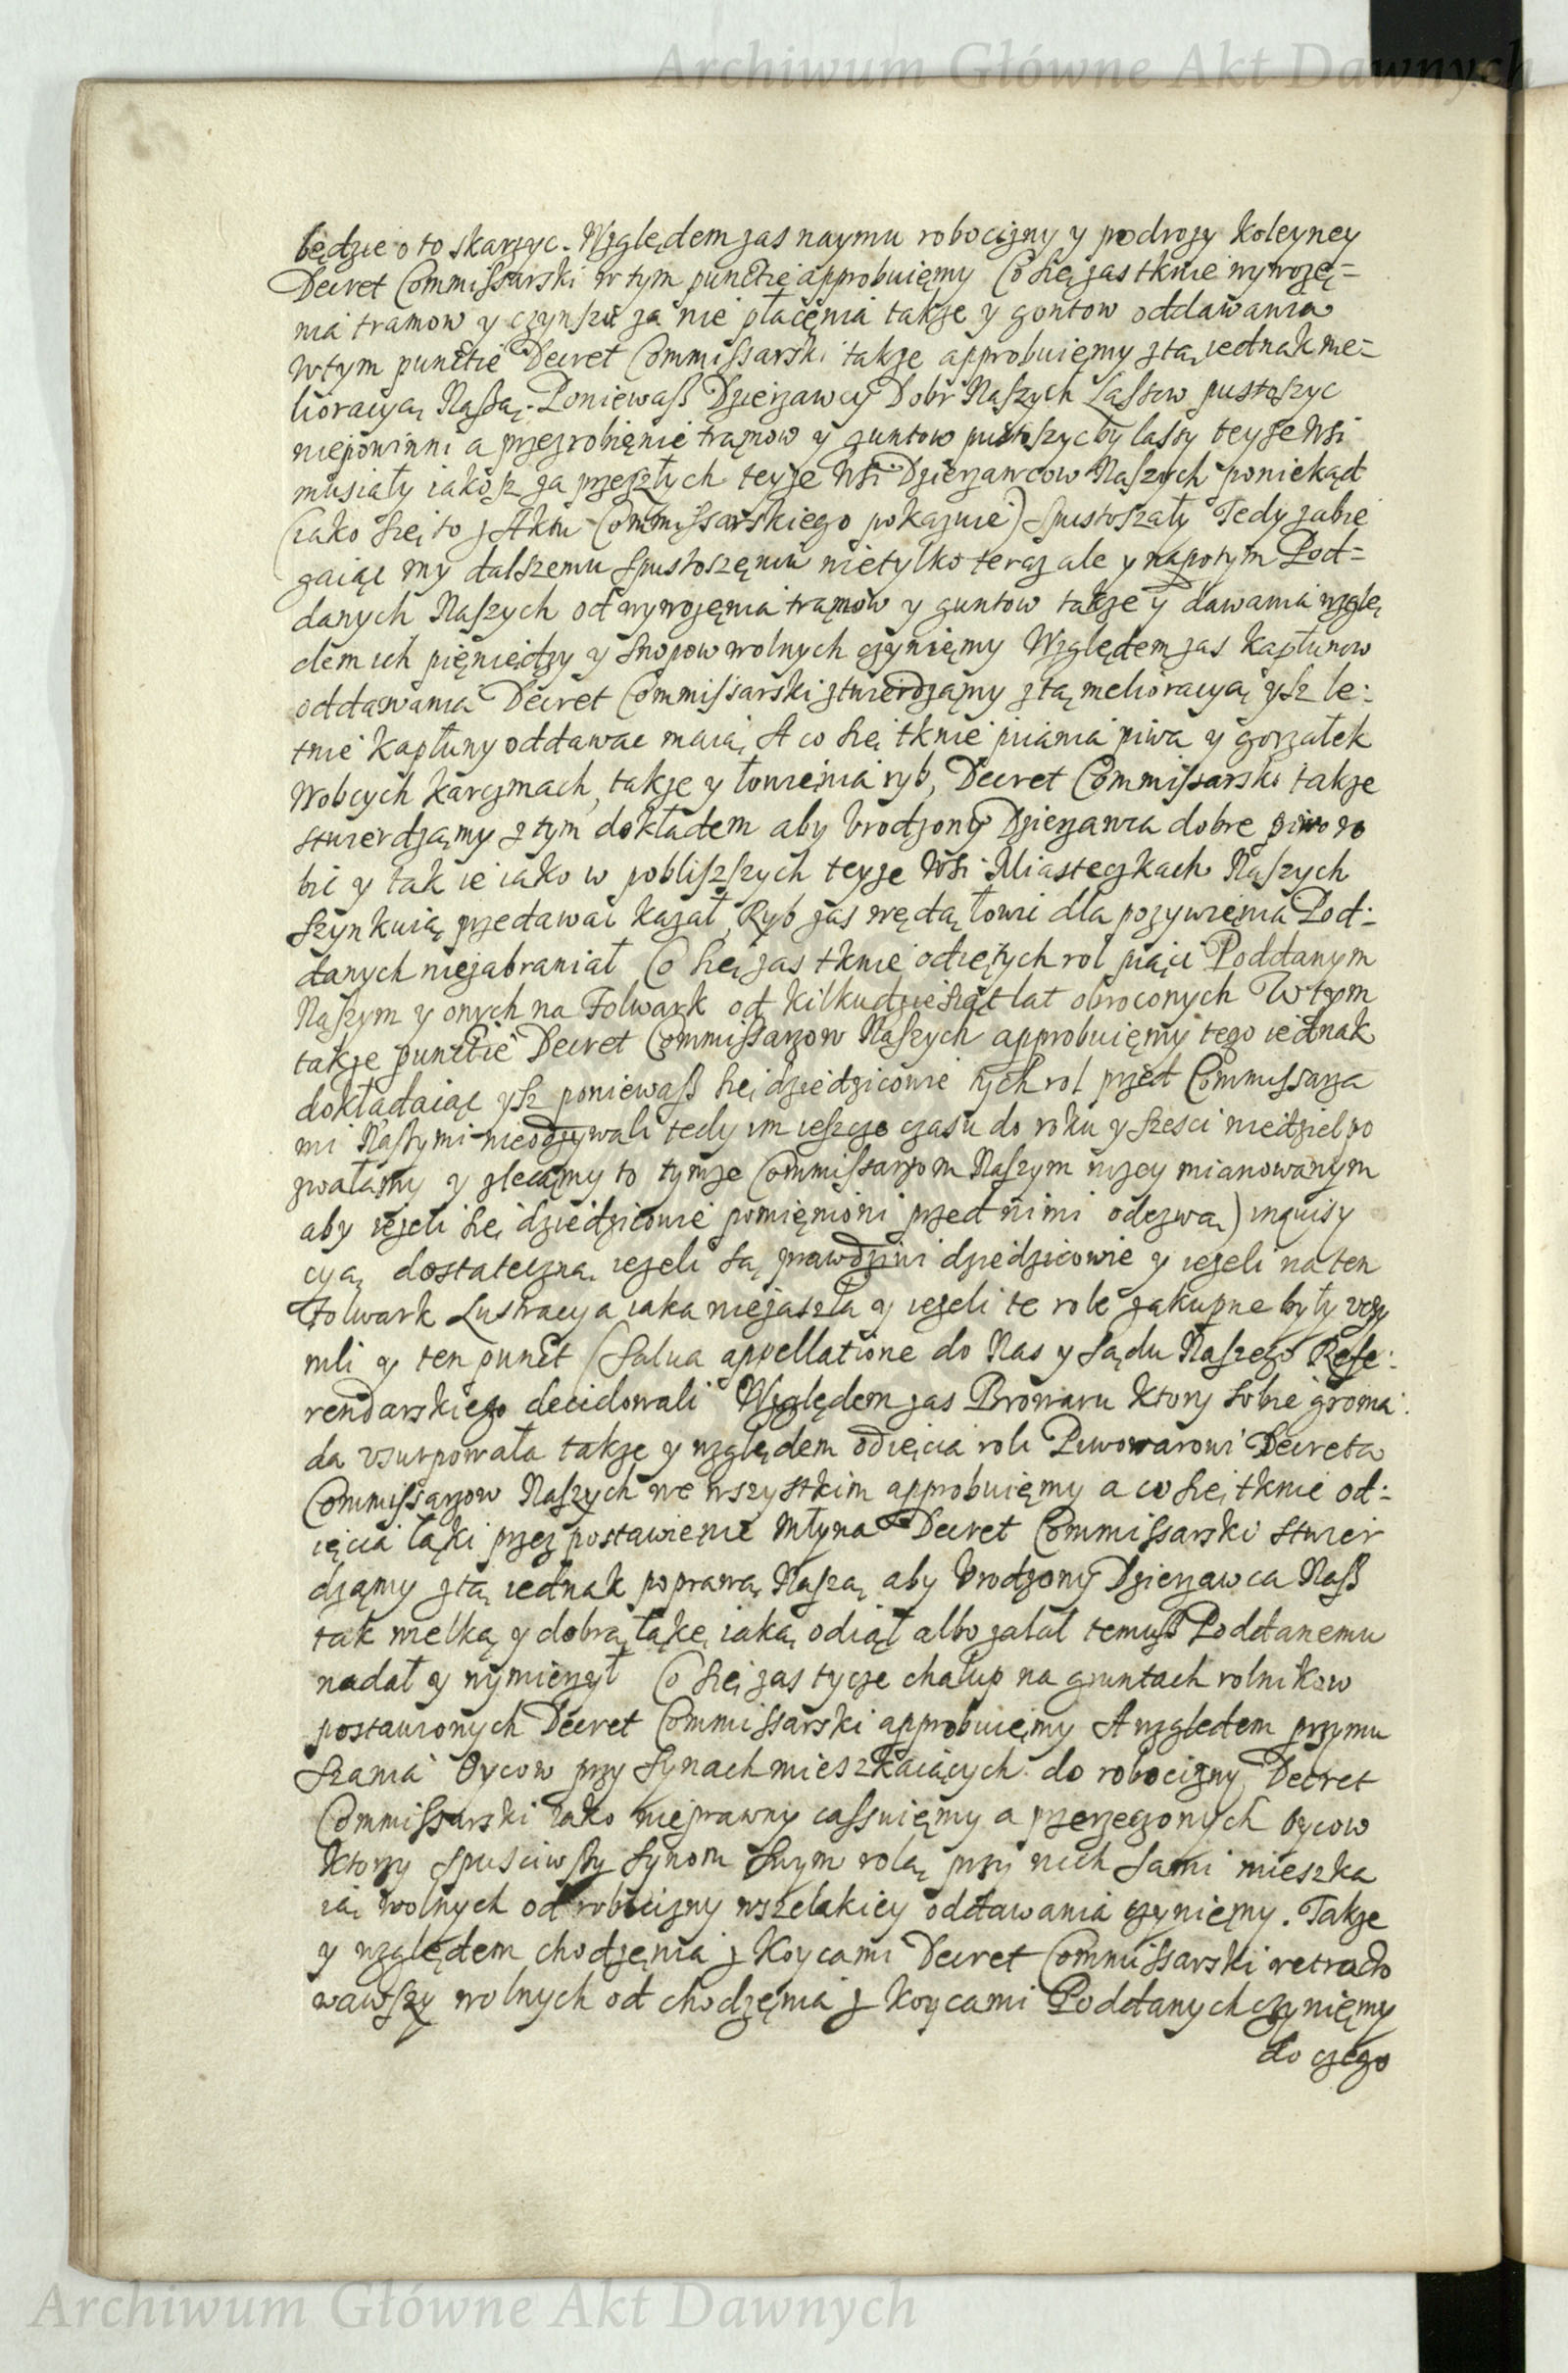 Archiwum Główne Akt Dawnych
będzie o to skarzyc. Względem zas naymu robocizny y podrozy koleyney
Decret Commissarski w tym punctie approbuięmy Co się zas tknie wywozę=
nia tramow y czynszu za nie płacęnia takze y gontow oddawania
w tym punctie Decret Commissarski takze approbuięmy z tą iednak me=
lioracyą Naszą. Poniewasz Dzierzawcy Dobr Naszych Lassow pustoszyc
niepowinni a przez robięnie trąmow y guntow pustoszyc by lassy teyze wsi
musiały iakosz za przeszłych teyze Wsi Dzierzawcow Naszych poniekąd
(iako się to z Aktu Commissarskiego pokazuie) spustoszały Tedy zabie
gaiąc my dalszemu spustoszęniu nietylko teraz ale y napotym Pod=
danych Naszych od wywozęnia trąmow y guntow takze y dawania wzglę
dem ich pięniędzy y snopow wolnych czynięmy Względem zas kapłunow
oddawania Decret Commissarski ztwierdząmy z tą melioracyą ysz le=
tnie kapłuny oddawac maią, A co się tknie piiania piwa y gorzałek
w obcych karczmach, takze y łowięnia ryb, Decret Commissarski takze
stwierdząmy z tym dokładem aby Urodzony Dzierzawca dobre piwo ro
bic y takie iako w pobliszszych teyze Wsi Miasteczkach Naszych
szynkuią przedawac kazał, Ryb zas wędą łowic dla pozywięnia Pod=
danych niezabraniał Co się zas tknie odiętych rol piąci Poddanym
Naszym y onych na Folwark od kilkudziesiąt lat obroconych W tym
takze punctie Decret Commissarzow Naszych approbuięmy tego iednak
dokładaiąc ysz poniewasz się dziedzicowie tych rol przed Commissarza
mi Naszymi nieodzywali tedy im ieszcze czasu do roku y szesci niedziel po
zwalamy y zlecamy to tymze Commissarzom Naszym nizey mianowanym
aby iezeli się dziedzicowie pomięnioni przed nimi odezwą) inquisy
cyą dostateczną iezeli są prawdziwi dziedzicowie y iezeli na ten
Folwark Lustracya iaka niezaszła y iezeli te role zakupne były vczy
nili y ten punct (salua appellatione do Nas y sądu Naszego Refe=
rendarskiego decidowali Względem zas Browaru ktory sobie groma=
da vsurpowała takze y względem odięcia roli Piwowarowi Decreta
Commissarzow Naszych we wszystkim approbuięmy a co się tknie od=
ięcia łąki przez postawienie Młyna Decret Commissarski stwier
dząmy z tą iednak poprawą Naszą aby Vrodzony Dzierzawca Nasz
tak wielką y dobrą łąkę iaką odiął albo zalał temusz Poddanemu
nadał y wymierzył Co się zas tycze chałup na gruntach rolnikow
postawionych Decret Commissarski approbuięmy A względem przymu
szania Oycow przy synach mieszkaiących do robocizny Decret
Commissarski iako nieprawny cassuięmy a przerzeczonych oycow
ktorzy spusciwszy synom swym rolą przy nich sami mieszka
ią wolnych od robocizny wszelakiey oddawania czynięmy. Takze
y względem chodzęnia z Koycami Decret Commissarski retracto
wawszy wolnych od chodzęnia z koycami Poddanych czynięmy
do czego
Archiwum Główne Akt Dawnych